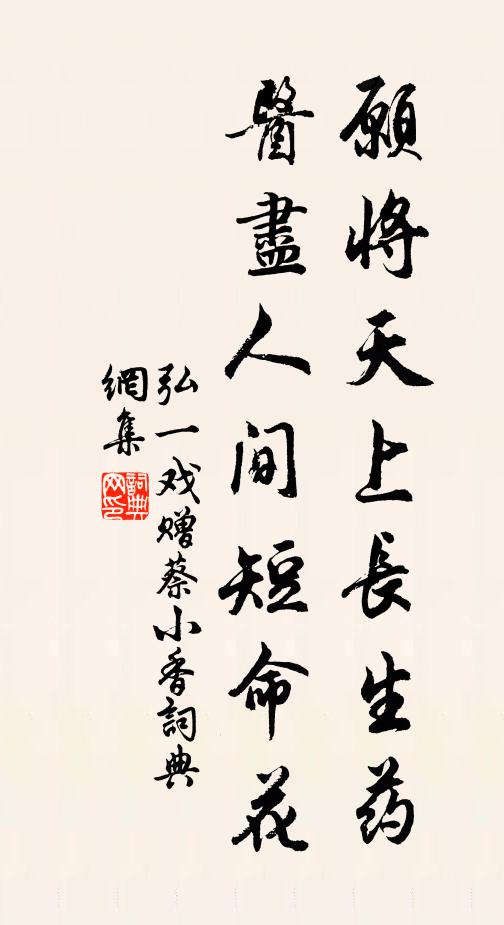 願将天上長生药
醫盡人间短命花
弘一戏赠蔡小香詞典
網集
詞典
网印